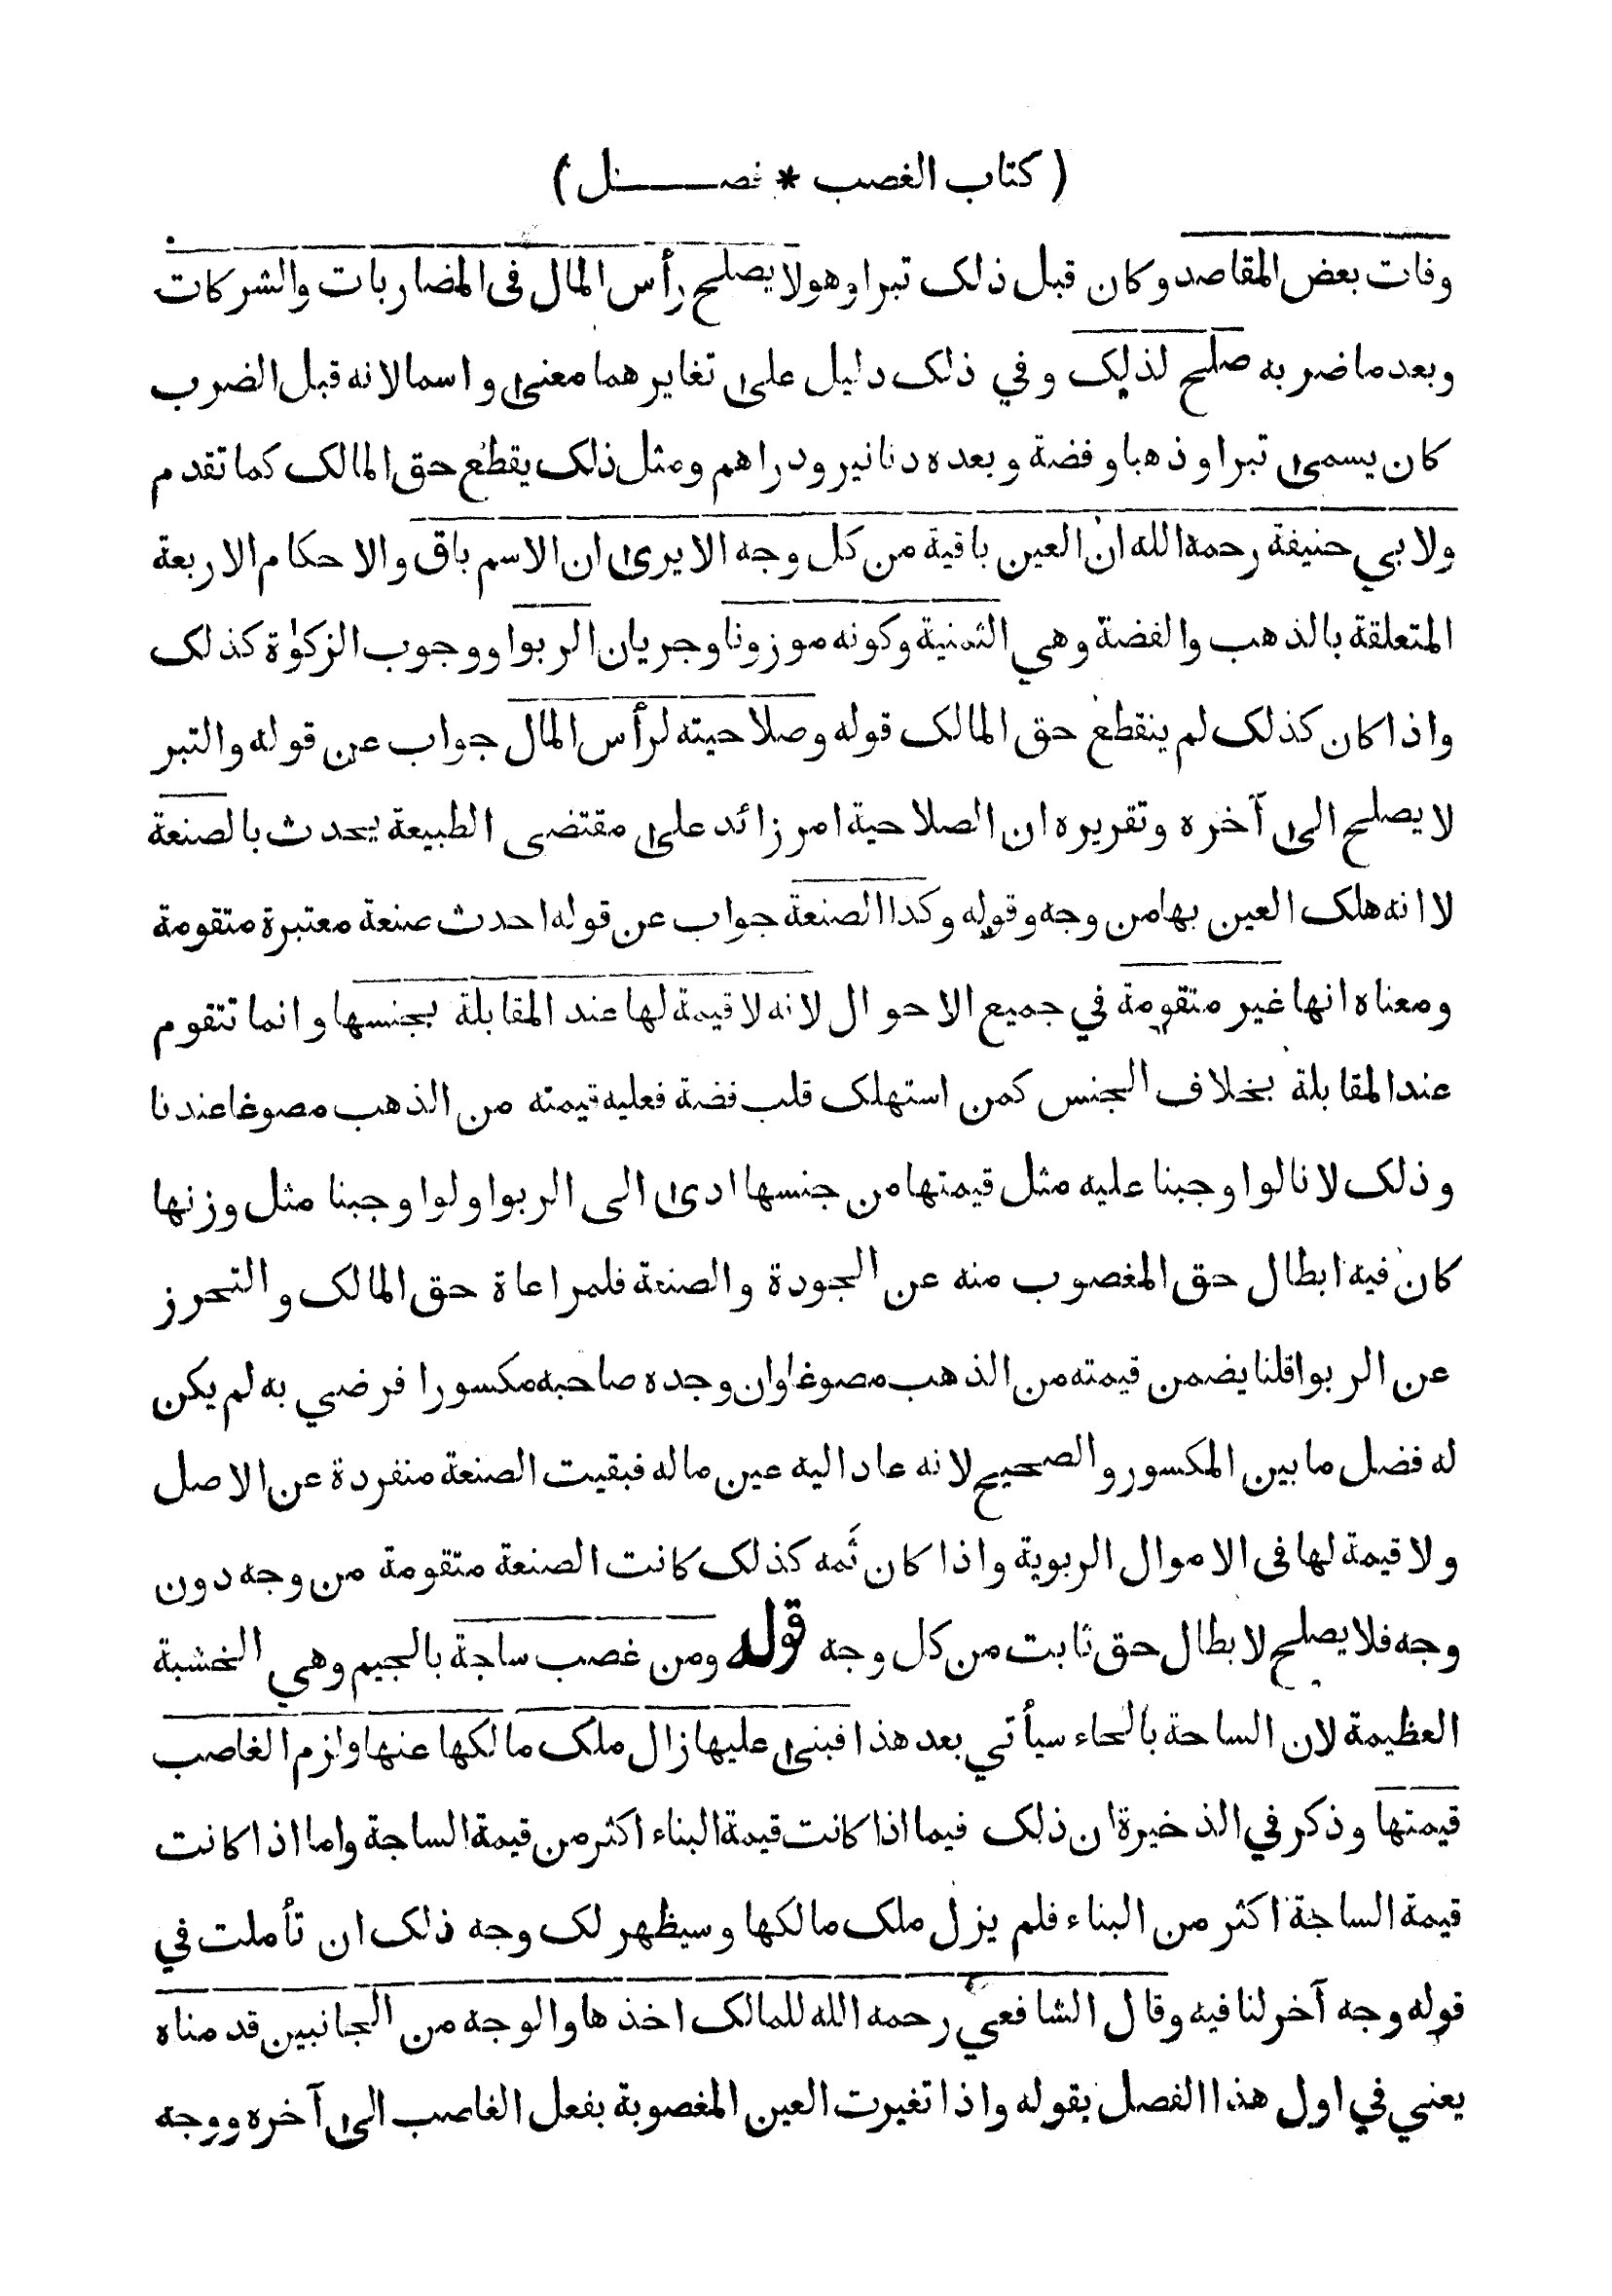 ( كتاب الغصب * فصـــــل )
وفات بعض المقاصد وكان قبل ذلك تبرا وهو لا يصلح رأس المال فى المضاربات والشركات
وبعد ما ضربه صلح لذلك وفي ذلك دليل على تغايرهما معنى واسما لانه قبل الضرب
كان يسمى تبرا وذهبا وفضة وبعده دنانير ودراهم ومثل ذلك يقطع حق المالك كما تقدم
ولابي حنيفة رحمه الله ان العين باقية من كل وجه الا يرى ان الاسم باق والاحكام الاربعة
المتعلقة بالذهب والفضة وهي الثمنية وكونه موزونا وجريان الربوا ووجوب الزكوٰة كذلك
واذا كان كذلك لم ينقطع حق المالك قوله وصلاحيته لرأس المال جواب عن قوله والتبر
لا يصلح الى آخره وتقريره ان الصلاحية امر زائد على مقتضى الطبيعة يحدث بالصنعة
لا انه هلك العين بها من وجه وقوله وكذا الصنعة جواب عن قوله احدث صنعة معتبرة متقومة
ومعناه انها غير متقومة في جميع الاحوال لانه لا قيمة لها عند المقابلة بجنسها وانما تتقوم
عند المقابلة بخلاف الجنس كمن استهلك قلب فضة فعليه قيمته من الذهب مصوغا عندنا
وذلك لانا لو اوجبنا عليه مثل قيمتها من جنسها ادى الى الربوا ولو اوجبنا مثل وزنها
كان فيه ابطال حق المغصوب منه عن الجودة والصنعة فلمراعاة حق المالك والتحرز
عن الربوا قلنا يضمن قيمته من الذهب مصوغا وان وجده صاحبه مكسورا فرضي به لم يكن
له فضل ما بين المكسور والصحيح لانه عاد اليه عين ماله فبقيت الصنعة منفردة عن الاصل
ولا قيمة لها فى الاموال الربوية واذا كان ثَمه كذلك كانت الصنعة متقومة من وجه دون
وجه فلا يصلح لابطال حق ثابت من كل وجه قوله ومن غصب ساجة بالجيم وهي الخشبة
العظيمة لان الساحة بالحاء سيأتي بعد هذا فبنى عليها زال ملك مالكها عنها ولزم الغاصب
قيمتها وذكر في الذخيرة ان ذلك فيما اذا كانت قيمة البناء اكثر من قيمة الساجة واما اذا كانت
قيمة الساجة اكثر من البناء فلم يزل ملك مالكها وسيظهر لك وجه ذلك ان تأملت في
قوله وجه آخر لنا فيه وقال الشافعي رحمه الله للمالك اخذها والوجه من الجانبين قدمناه
يعني في اول هذا الفصل بقوله واذا تغيرت العين المغصوبة بفعل الغاصب الى آخره ووجه